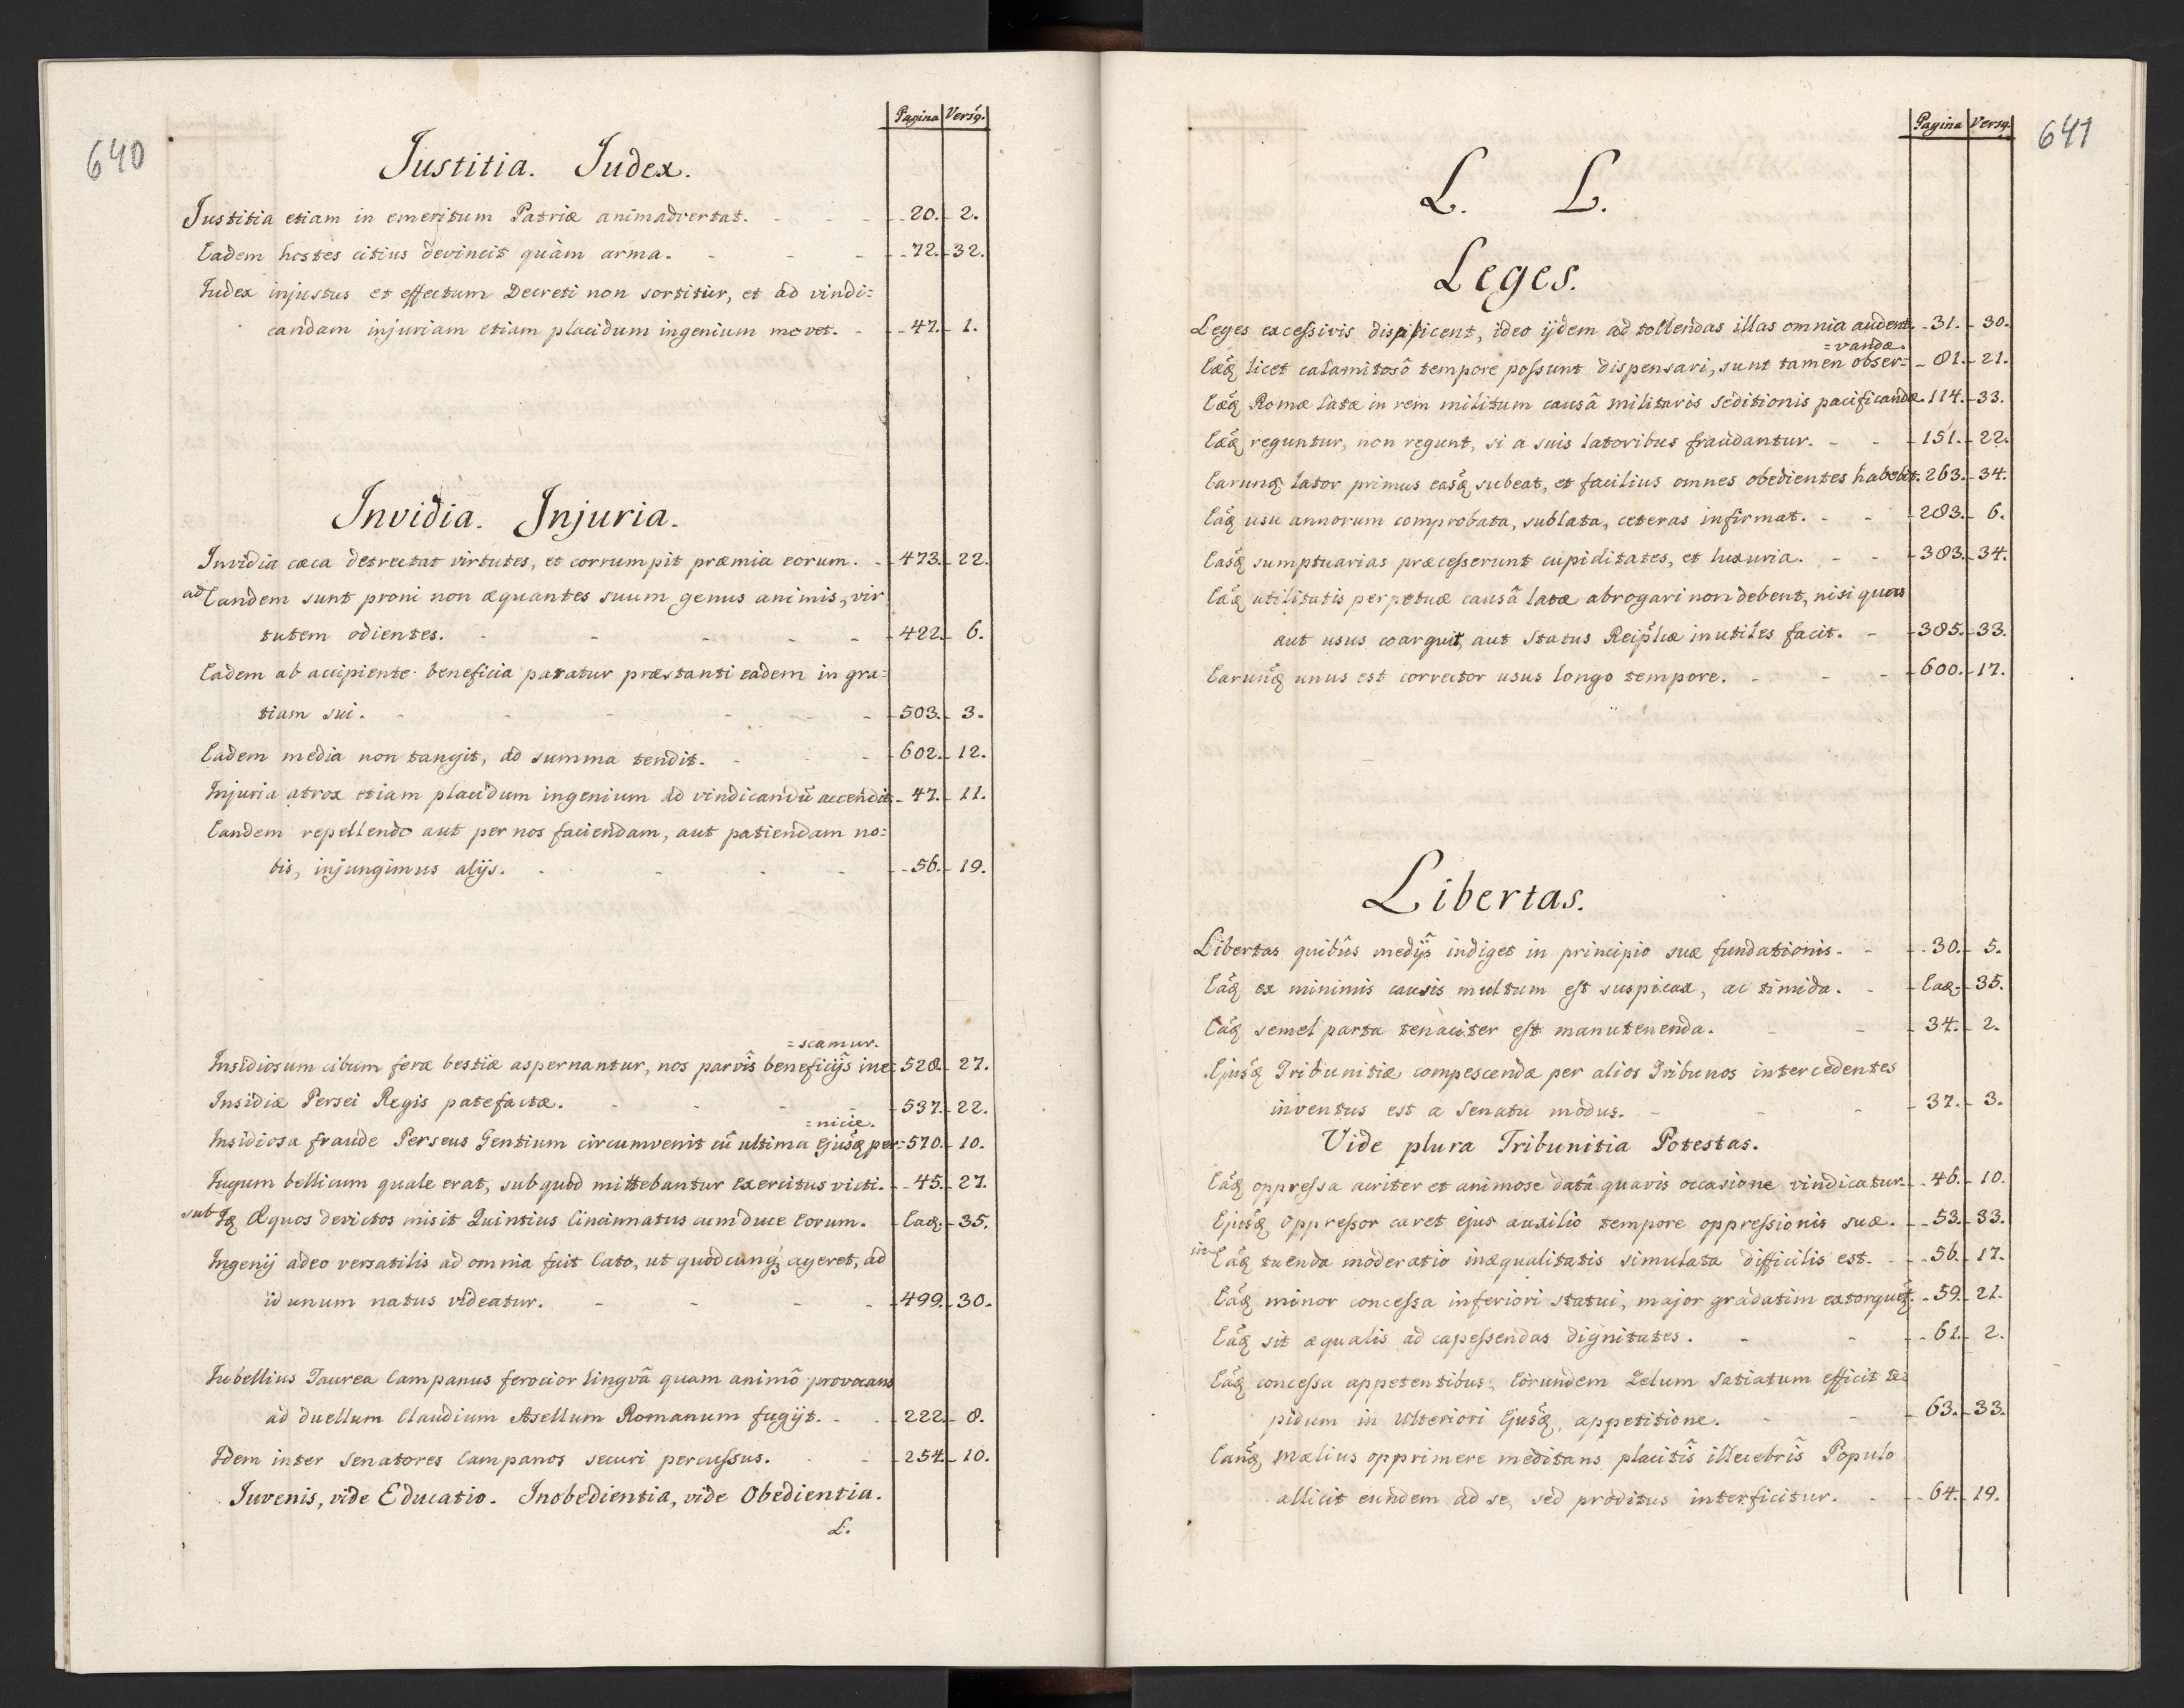 640
Pagina Versq.
Justitia. Judex.
Justitia etiam in emeritum Patriæ animadvertat. - - - 20. - 2.
Eadem hostes citius devincit quàm arma. - - - 72. - 32.
Judex injustus et effectum Decreti non sortitur, et ad vindi=
candam injuriam etiam placidum ingenium movet. - - 47. - 1.
Invidia. Injuria.
Invidia cæca detrectat virtutes, et corrumpit præmia eorum. - 473. - 22.
ad Eandem sunt proni non æquantes suum genus animis, vir
tutem odientes. - - - - 422. - 6.
Eadem ab accipiente beneficia paratur præstanti eadem in gra=
tiam sui. - - - - - 503. - 3.
Eadem media non tangit, ad summa tendit. - - - 602. - 12.
Injuria atrox etiam placidum ingenium ad vindicandū accendit - 47. - 11.
Eandem repellendo aut per nos faciendam, aut patiendam no=
bis, injungimus alijs. - - - - 56. - 19.
=scamur.
Insidiosum cibum feræ bestiæ aspernantur, nos parvîs beneficijs ine= 528. - 27.
Insidiæ Persei Regis patefactæ. - - - - 537. - 22.
=nicie.
Insidiosa fraude Perseus Gentium circumvenit cū ultima ejusq per= 570. - 10.
Jugum bellicum quale erat, sub quod mittebantur Exercitus victi. - 45. - 27.
sub Jq Æquos devictos misit Quintius Cincinnatus cum duce Eorum. - Eaq. - 35.
Ingenij adeo versatilis ad omnia fuit Cato, ut quodcunq ageret, ad
id unum natus videatur. - - - - 499. - 30.
Jubellius Taurea Campanus ferocior lingvâ quam animô provocans
ad duellum Claudium Asellum Romanum fugijt. - - 222. - 8.
Idem inter Senatores Campanos securi percussus. - - 254. - 10.
Juvenis, vide Educatio. Inobedientia, vide Obedientia.
L.
641
Pagina Versq.
L. L.
Leges.
Leges excessivis displicent, ideo ijdem ad tollendas illas omnia audent. - 31. - 30.
=vandæ.
Eæq licet calamitosô tempore possunt dispensari, sunt tamen obser= - 81. - 21.
Eæq Romæ latæ in rem militum causâ militaris seditionis pacificandæ. 114. - 33.
Eæq reguntur, non regunt, si a suis latoribus fraudantur. - - 151. - 22.
Earunq lator primus easq subeat, et facilius omnes obedientes habebit. 263. - 34.
Eaq usu annorum comprobata, sublata, ceteras infirmat. - - 283. - 6.
Easq sumptuarias præcesserunt cupiditates, et luxuria. - - 383. - 34.
Eæq utilitatis perpetuæ causâ latæ abrogari non debent, nisi quas
aut usus coarguit, aut status Reipłcæ inutiles facit. - 385. - 33.
Earunq unus est corrector usus longo tempore. - - - 600. - 17.
Libertas.
Libertas quibûs medijs indiget in principio suæ fundationis. - - 30. - 5.
Eaq ex minimis causis multum est suspicax, ac timida. - - Eaq. - 35.
Eaq semel parta tenaciter est manutenenda. - - 34. - 2.
Ejusq Tribunitiæ compescendæ per alios Tribunos intercedentes
inventus est a Senatu modus. - - - 37. - 3.
Vide plura Tribunitia Potestas.
Eaq oppressa acriter et animose datâ quavis occasione vindicatur. - 46. - 10.
Ejusq Oppressor caret ejus auxilio tempore oppressionis suæ. - - 53. - 33.
in Eaq tuenda moderatio inæqualitatis simulata difficilis est. - - 56. - 17.
Eaq minor concessa inferiori statui, major gradatim extorquetr. - 59. - 21.
Eaq sit æqualis ad capessendas dignitates. - - - 61. - 2.
Eaq concessa appetentibus, Eorundem Zelum satiatum efficit te=
pidum in Ulteriori Ejusq appetitione. - - 63. - 33.
Eanq Mælius opprimere meditans placitîs illecebrîs Populo
allicit eundem ad se, sed proditus interficitur. - - 64. - 19.